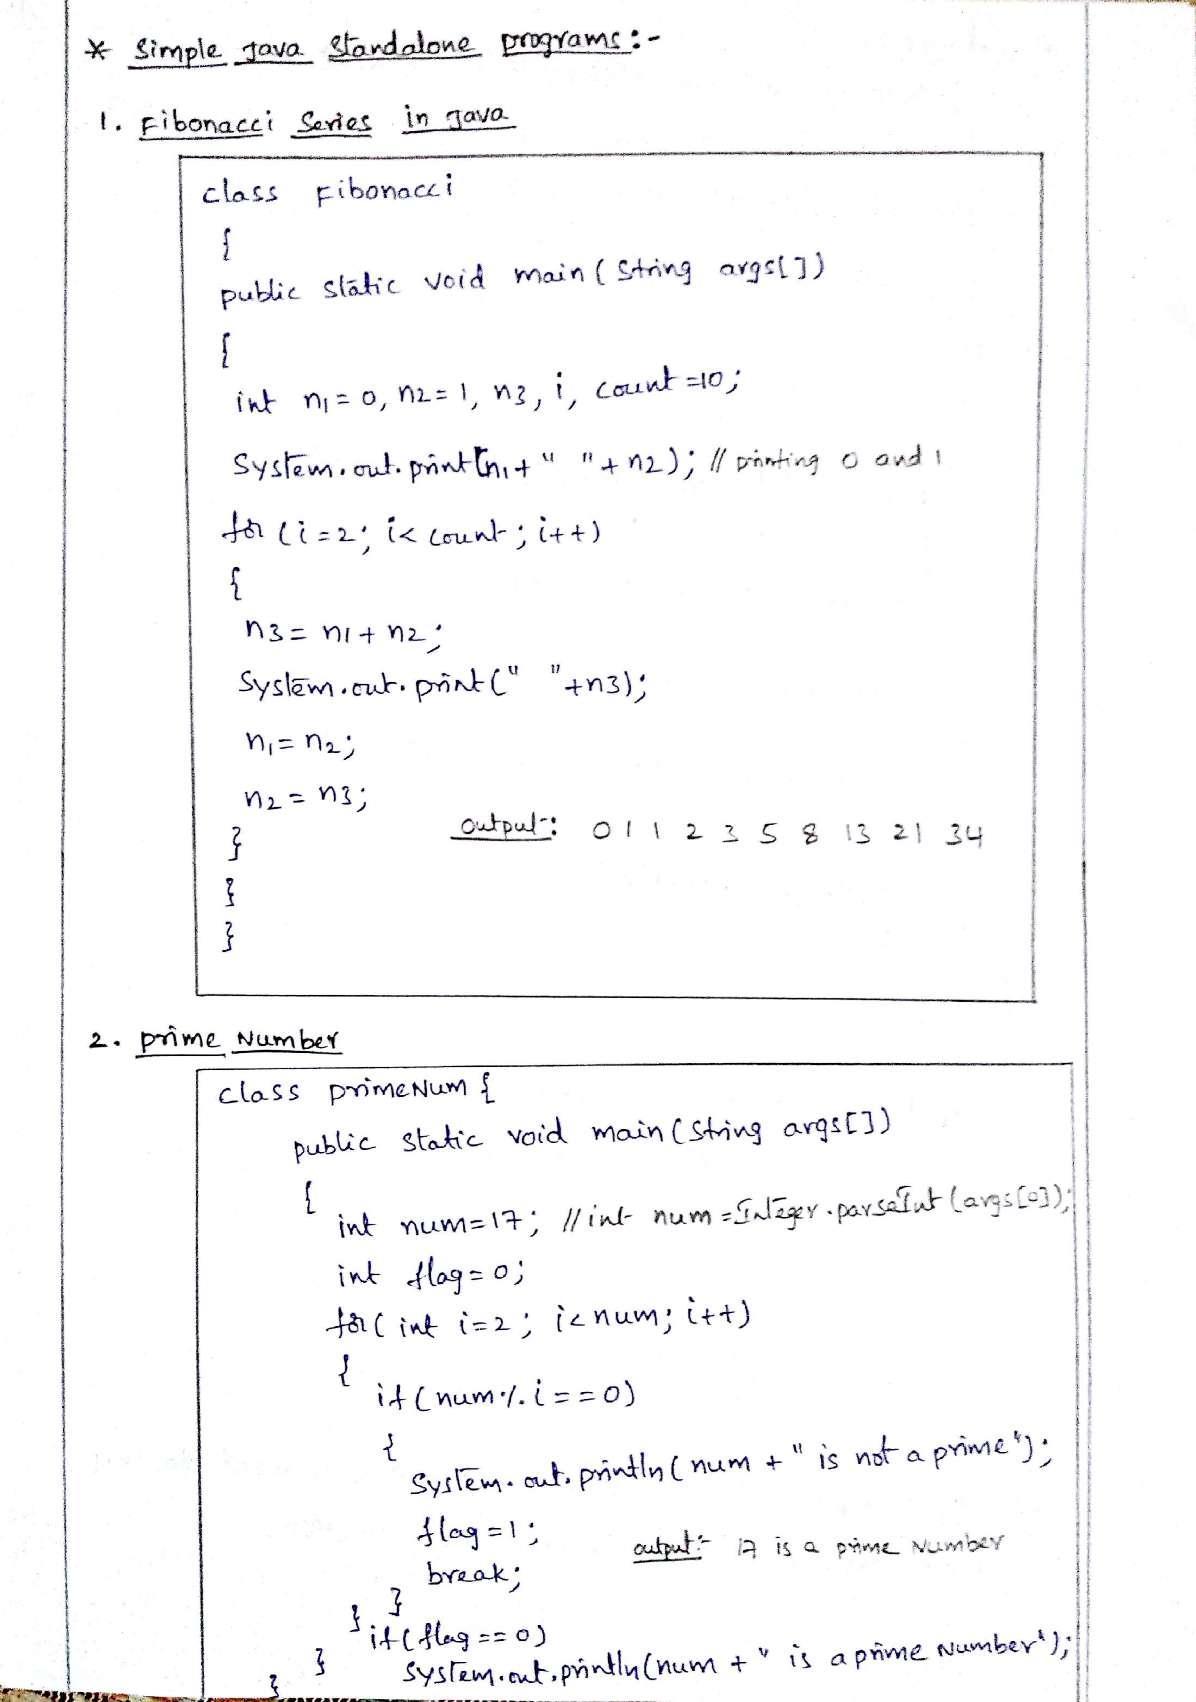 * Simple Java Standalone programs:-
1. Fibonacci Series in Java
class Fibonacci
{
public static void main(String args[])
{
int n1=0, n2=1, n3, i, count=10;
System.out.print(n1+" "+n2); // printing 0 and 1
for(i=2; i<count; i++)
{
n3=n1+n2;
System.out.print(" "+n3);
n1=n2;
n2=n3;
}
output:- 0 1 1 2 3 5 8 13 21 34
}
}
2. prime Number
class primeNum {
public static void main(String args[])
{
int num=17; //int num=Integer.parseInt(args[0]);
int flag=0;
for(int i=2; i<num; i++)
{
if(num%i==0)
{
System.out.println(num+" is not a prime");
flag=1;
output:- 17 is a prime Number
break;
}
} if(flag==0)
} System.out.println(num+" is a prime Number");
}